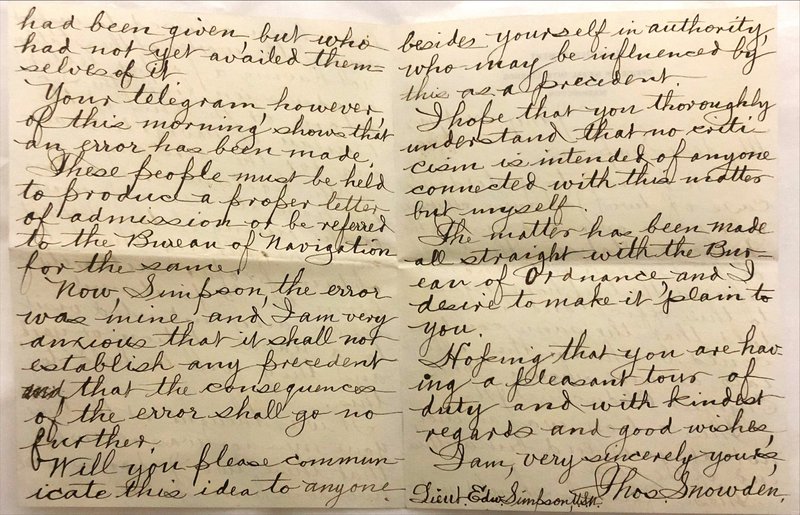 had been given but who
had not yet availed them-
selves of it
Your telegram however,
of this morning, shows that
an error has been made.
These people must be held
to produce a proper letter
of admission or be referred
to the Bureau of Navigation
for the same.
Now, Simpson, the error
was mine, and I am very
anxious that it shall not
establish any precedent
and that the consequences
of the error shall go no
further.
Will you please commun-
icate this idea to anyone
besides yourself in authority,
who may be influenced by
this as a precedent.
I hope that you thoroughly
understand that no criti-
cism is intended of anyone
connected with this matter
but myself.
The matter has been made
all straight with the Bur-
eau of Ordnance, and I
desire to make it plain to
you.
Hoping that you are hav-
ing a pleasant tour of
duty and with kindest
regards and good wishes,
I am, very sincerely yours,
Thos. Snowden,
Lieut. Edw. Simpson, U.S.N.